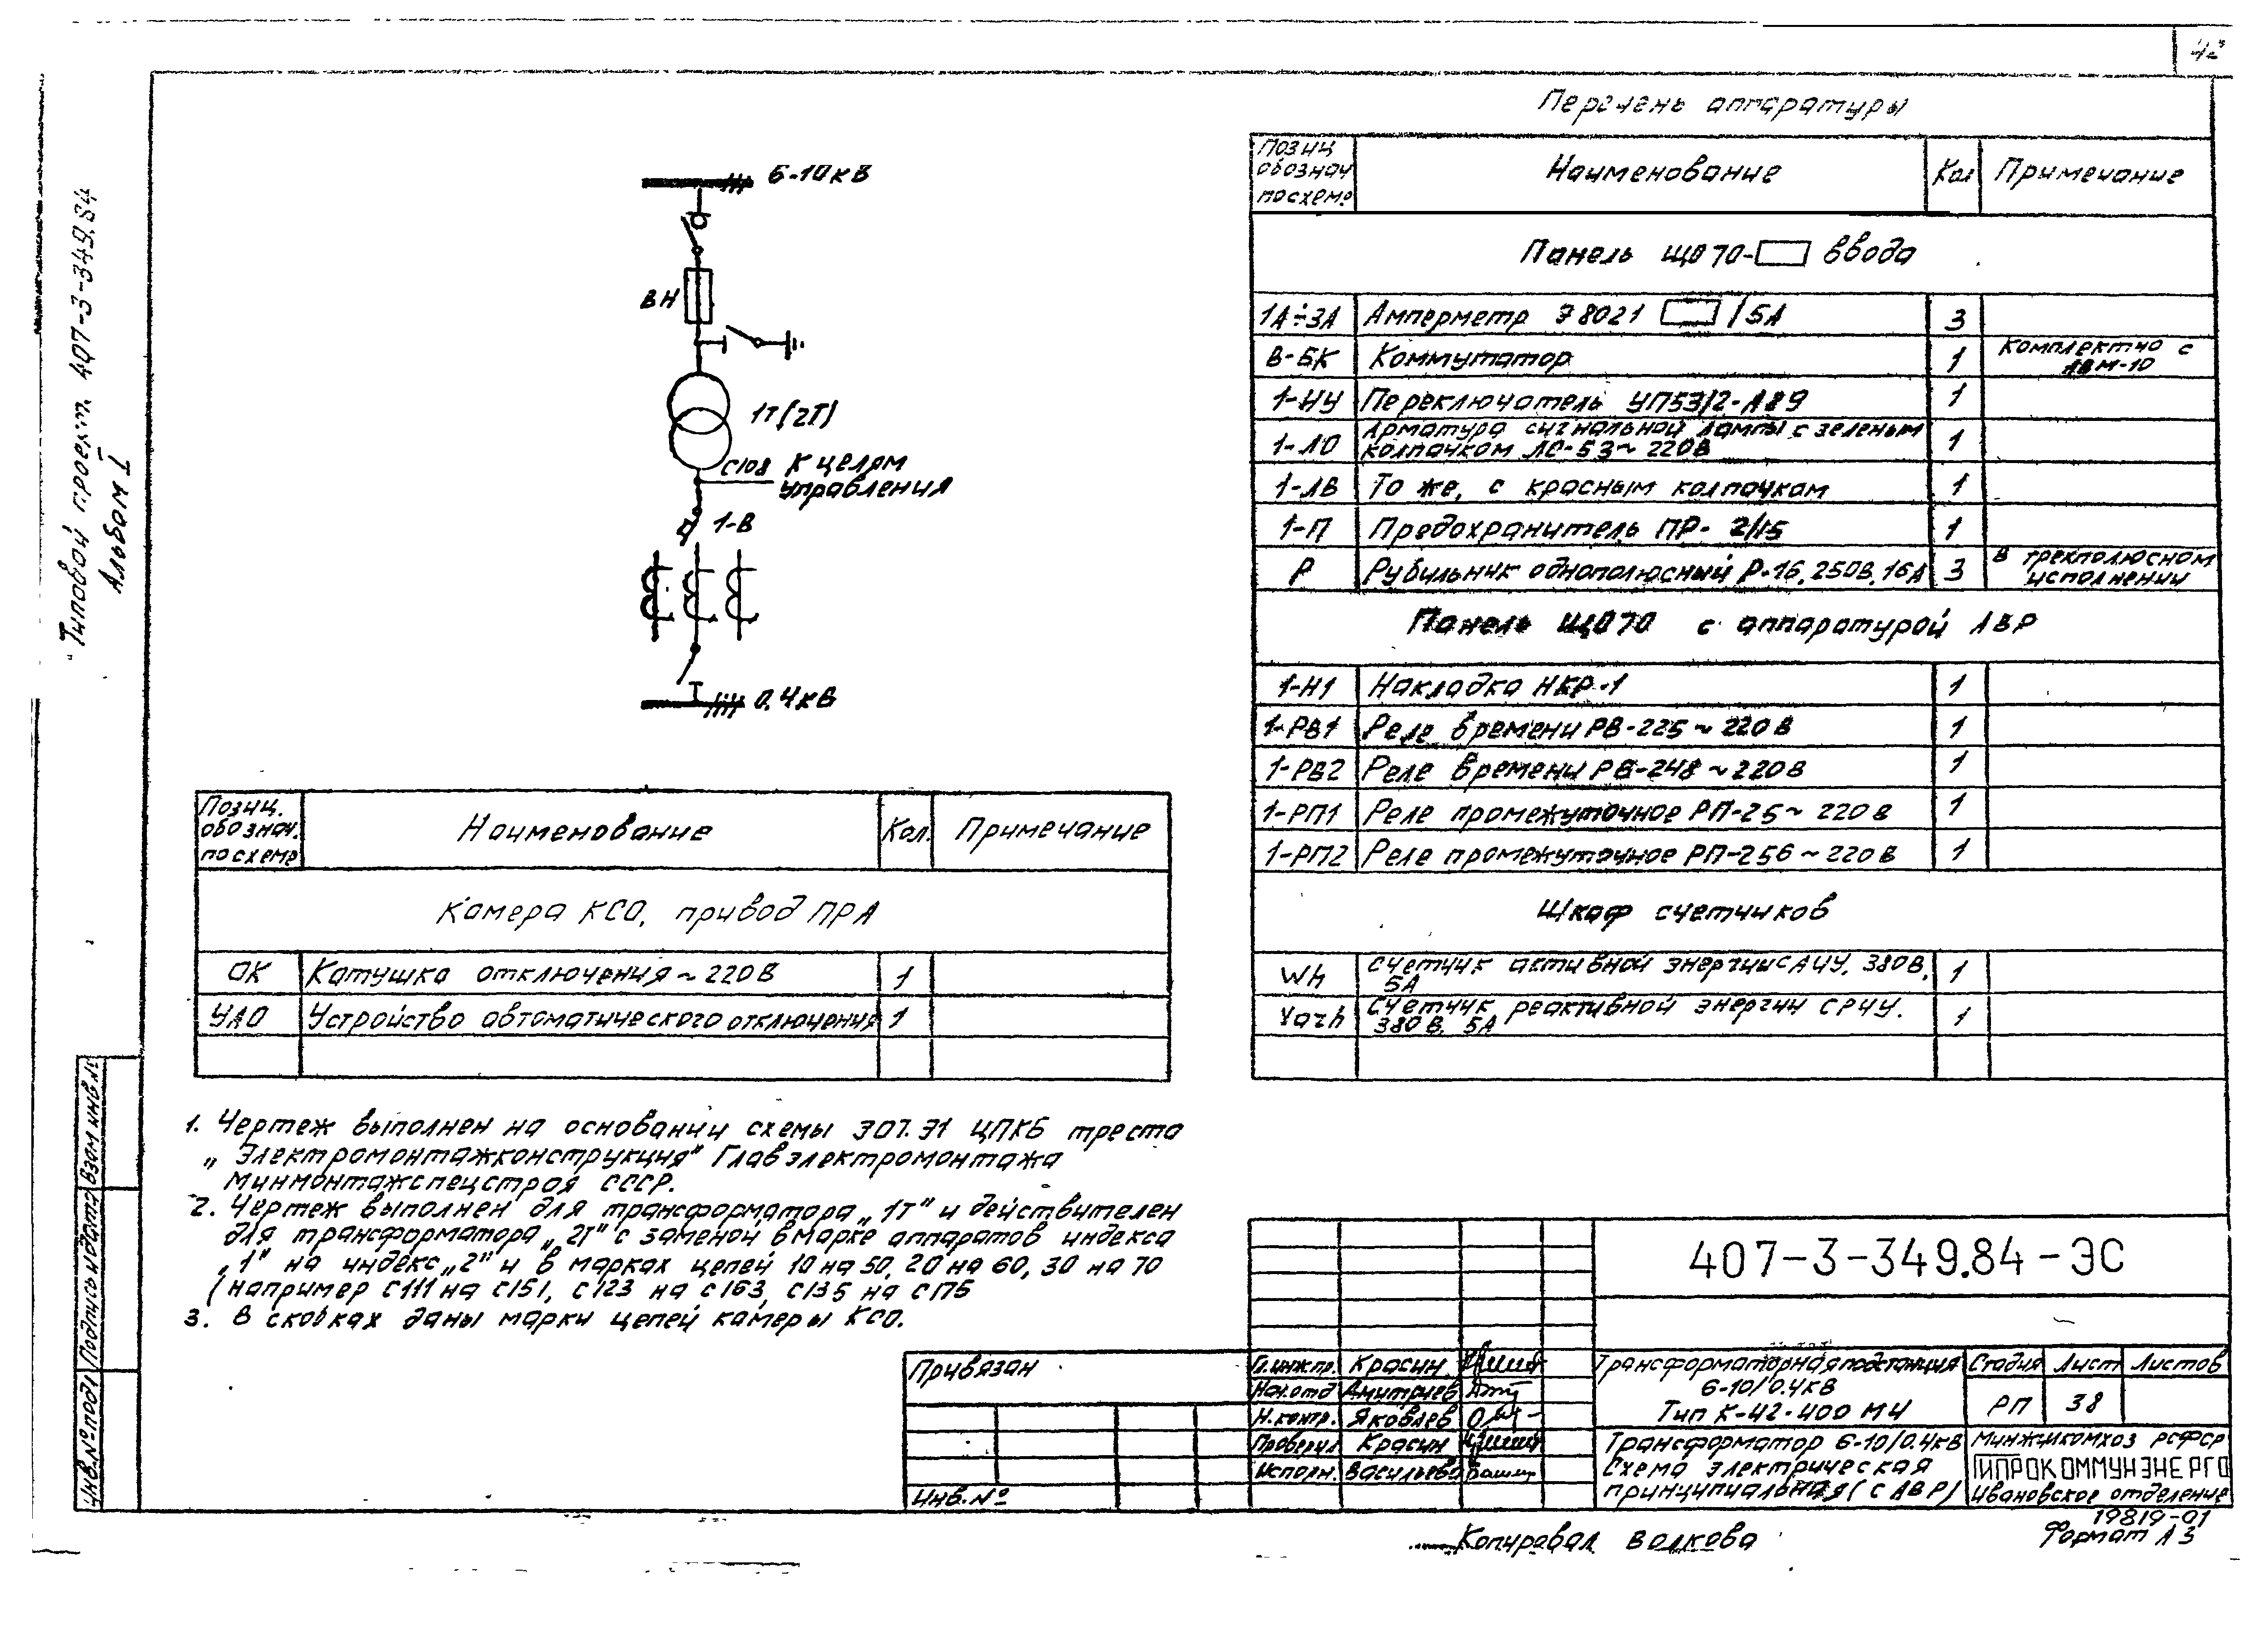 42
Типовой проект 407-3-349.84
Альбом I
6-10кВ
ВН
1Т(2Т)
С108 К цепям
управления
1-В
0,4кВ
Перечень аппаратуры
Позиц. обознач. по схеме Наименование Кол Примечание
Панель ЩО70- ввода
1А÷3А Амперметр Э8021 /5А 3
В-БК Коммутатор 1 Комплектно с АВМ-10
1-ПУ Переключатель УП5312-А89 1
1-ЛО Арматура сигнальной лампы с зеленым колпачком ЛС-53~220В 1
1-ЛВ То же, с красным колпачкам 1
1-П Предохранитель ПР-2/15 1
Р Рубильник однополюсный Р-16, 250В, 16А 3 В трехполюсном исполнении
Панель ЩО70 с аппаратурой АВР
1-Н1 Накладка НКР-1 1
1-РВ1 Реле времени РВ-225~220В 1
1-РВ2 Реле времени РВ-248~220В 1
1-РП1 Реле промежуточное РП-25~220В 1
1-РП2 Реле промежуточное РП-256~220В 1
Шкаф счетчиков
Wh Счетчик активной энергии САЧУ, 380В, 5А 1
Varh Счетчик реактивной энергии СРЧУ. 380В, 5А 1
Позиц. обознач. по схеме Наименование Кол. Примечание
Камера КСО, привод ПРА
ОК Катушка отключения ~220В 1
УАО Устройство автоматического отключения 1
1. Чертеж выполнен на основании схемы 307.Э1 ЦПКБ треста
„Электромонтажконструкция" Главэлектромонтажа
Минмонтажспецстроя СССР.
2. Чертеж выполнен для трансформатора „1Т" и действителен
для трансформатора „2Т" с заменой в марке аппаратов индекса
„1" на индекс „2" и в марках цепей 10 на 50, 20 на 60, 30 на 70
(например С111 на С151, С123 на С163, С135 на С175
3. В скобках даны марки цепей камеры КСО.
Инв.№подл Подпись и дата Взам инв.№
Привязан
Инв.№
407-3-349.84-ЭС
Гл.инж.пр. Красин
Нач.отд Дмитриев
Н.контр. Яковлев
Проверил Красин
Исполн. Васильева
Трансформаторная подстанция
6-10/0.4кВ
Тип К-42-400 М4
Стадия Лист Листов
РП 38
Трансформатор 6-10/0.4кВ
Схема электрическая
принципиальная (с АВР)
Минжилкомхоз РСФСР
ГИПРОКОММУНЭНЕРГО
Ивановское отделение
19819-01
Копировал Волкова
Формат А3